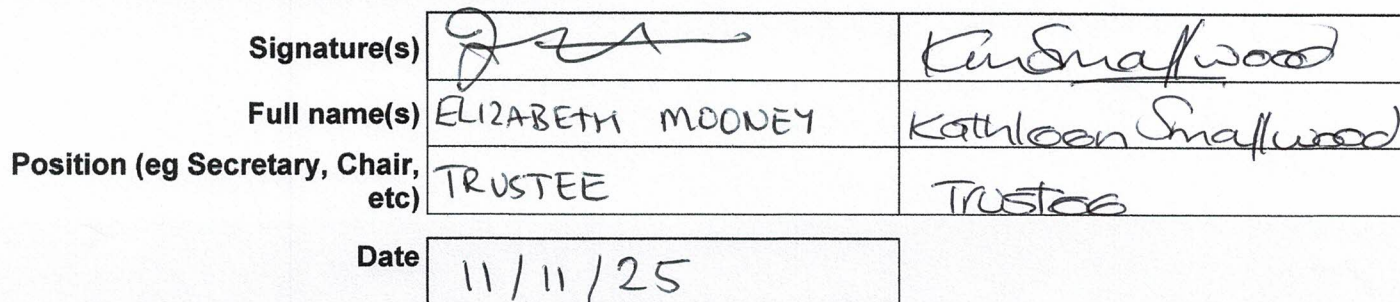 Signature(s) Smallwood
Full name(s) ELIZABETH MOONEY Kathleen Smallwood
Position (eg Secretary, Chair,
etc) TRUSTEE Trustee
Date 11/11/25